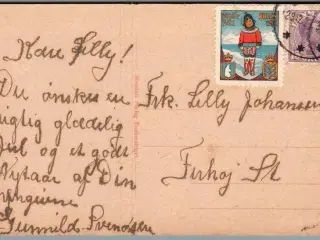 Kære Lilly!
Du ønskes en
rigtig glædelig
Jul og et godt
Nytaar af Din
Gunnild Svendsen
Frk. Lilly Johansen
Firhøj St